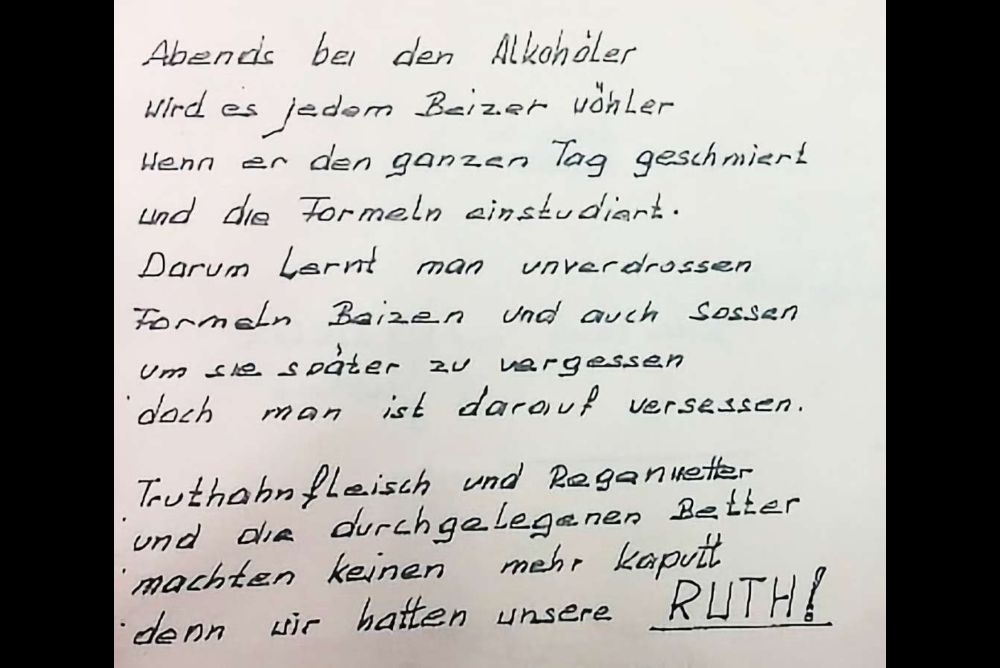 Abends bei den Alkohöler
Wird es jedem Beizer wöhler
Wenn er den ganzen Tag geschmiert
und die Formeln einstudiert.
Darum Lernt man unverdrossen
Formeln Beizen und auch Sossen
um sie später zu vergessen
doch man ist darauf versessen.
Truthahnfleisch und Regenwetter
und die durchgelegenen Better
machten keinen mehr kaputt
denn wir hatten unsere RUTH!